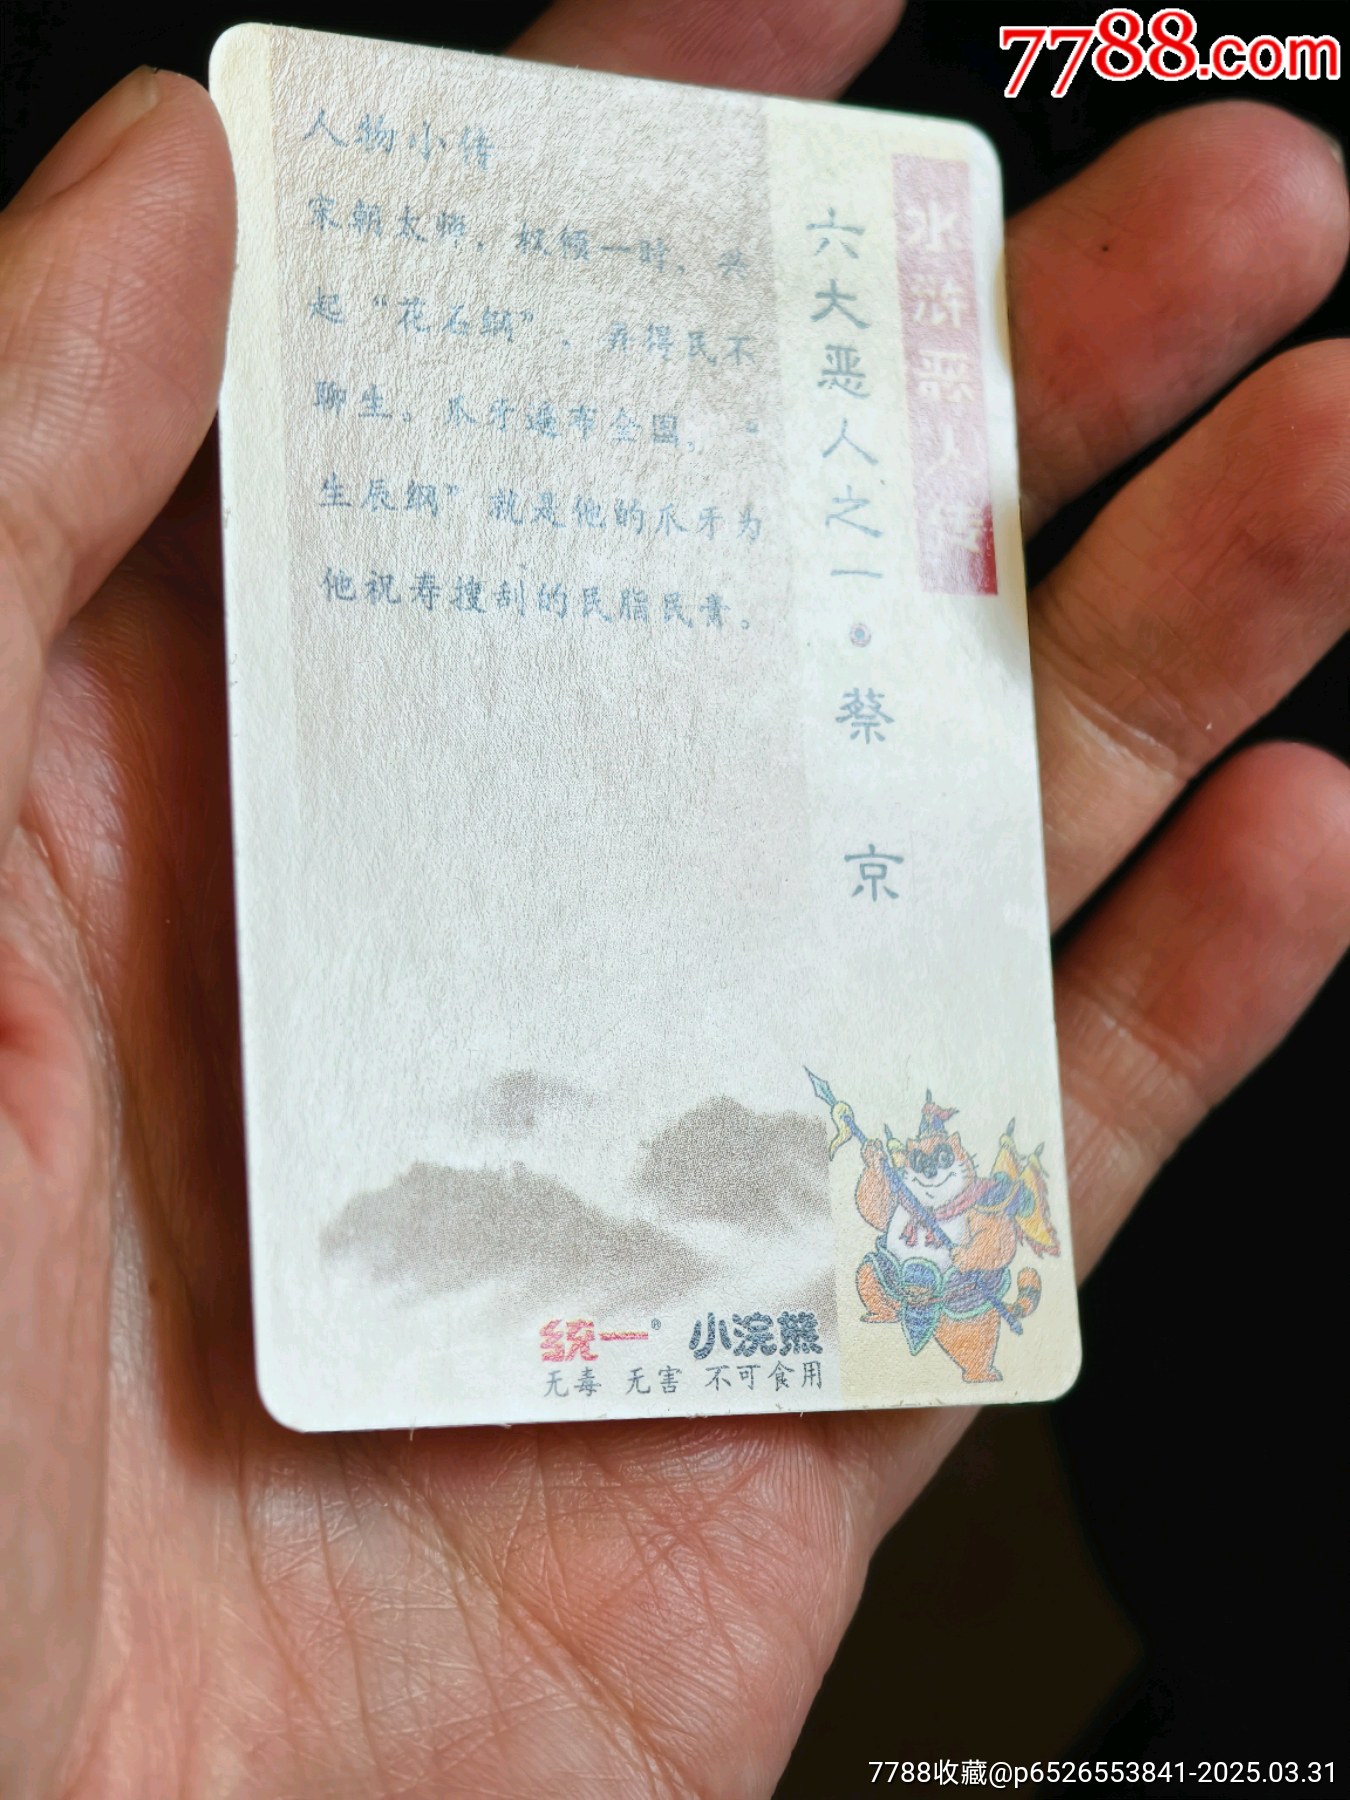 7788.com
水浒恶人传
六大恶人之一·蔡京
人物小传
宋朝太师，权倾一时，兴
起“花石纲”，弄得民不
聊生。爪牙遍布全国，“
生辰纲”就是他的爪牙为
他祝寿搜刮的民脂民膏。
统一® 小浣熊
无毒 无害 不可食用
7788收藏@p6526553841-2025.03.31